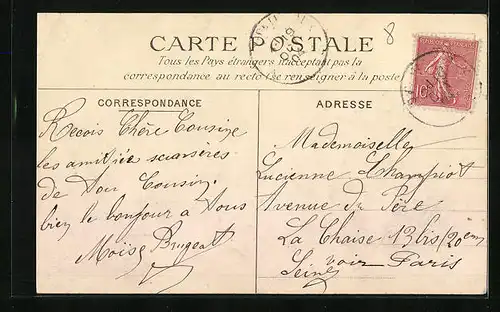 8
CARTE POSTALE
Tous les Pays étrangers n'acceptant pas la
correspondance au recto (se renseigner à la poste)
CORRESPONDANCE
Reçois Chère Cousine
les amitiés sincères
de ton Cousin.
bien le bonjour à tous
Moïse
ADRESSE
Mademoiselle
Lucienne Champiot
Avenue du Père
La Chaise 13 bis (20em
voir Paris
Seine
10c